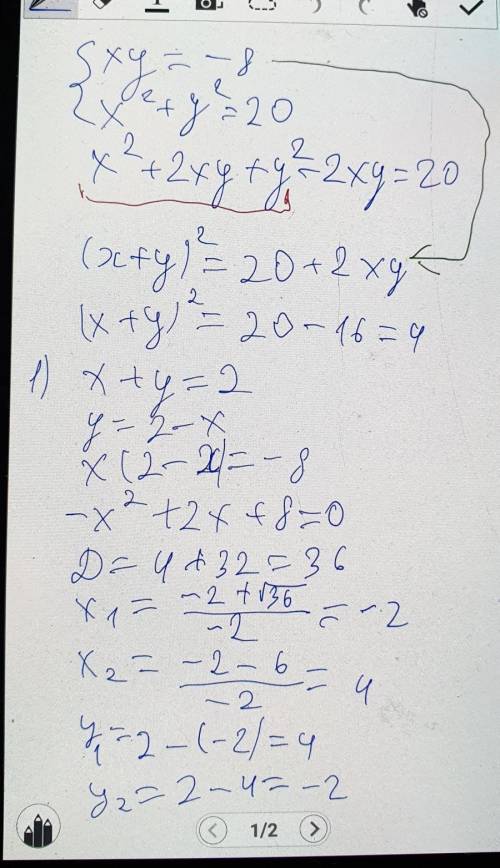 xy = -8
x² + y² = 20
x² + 2xy + y² - 2xy = 20
(x+y)² = 20 + 2xy
(x+y)² = 20 - 16 = 4
1) x + y = 2
y = 2 - x
x(2 - x) = -8
-x² + 2x + 8 = 0
D = 4 + 32 = 36
x₁ = (-2 + √36)/(-2) = -2
x₂ = (-2 - 6)/(-2) = 4
y₁ = 2 - (-2) = 4
y₂ = 2 - 4 = -2
1/2